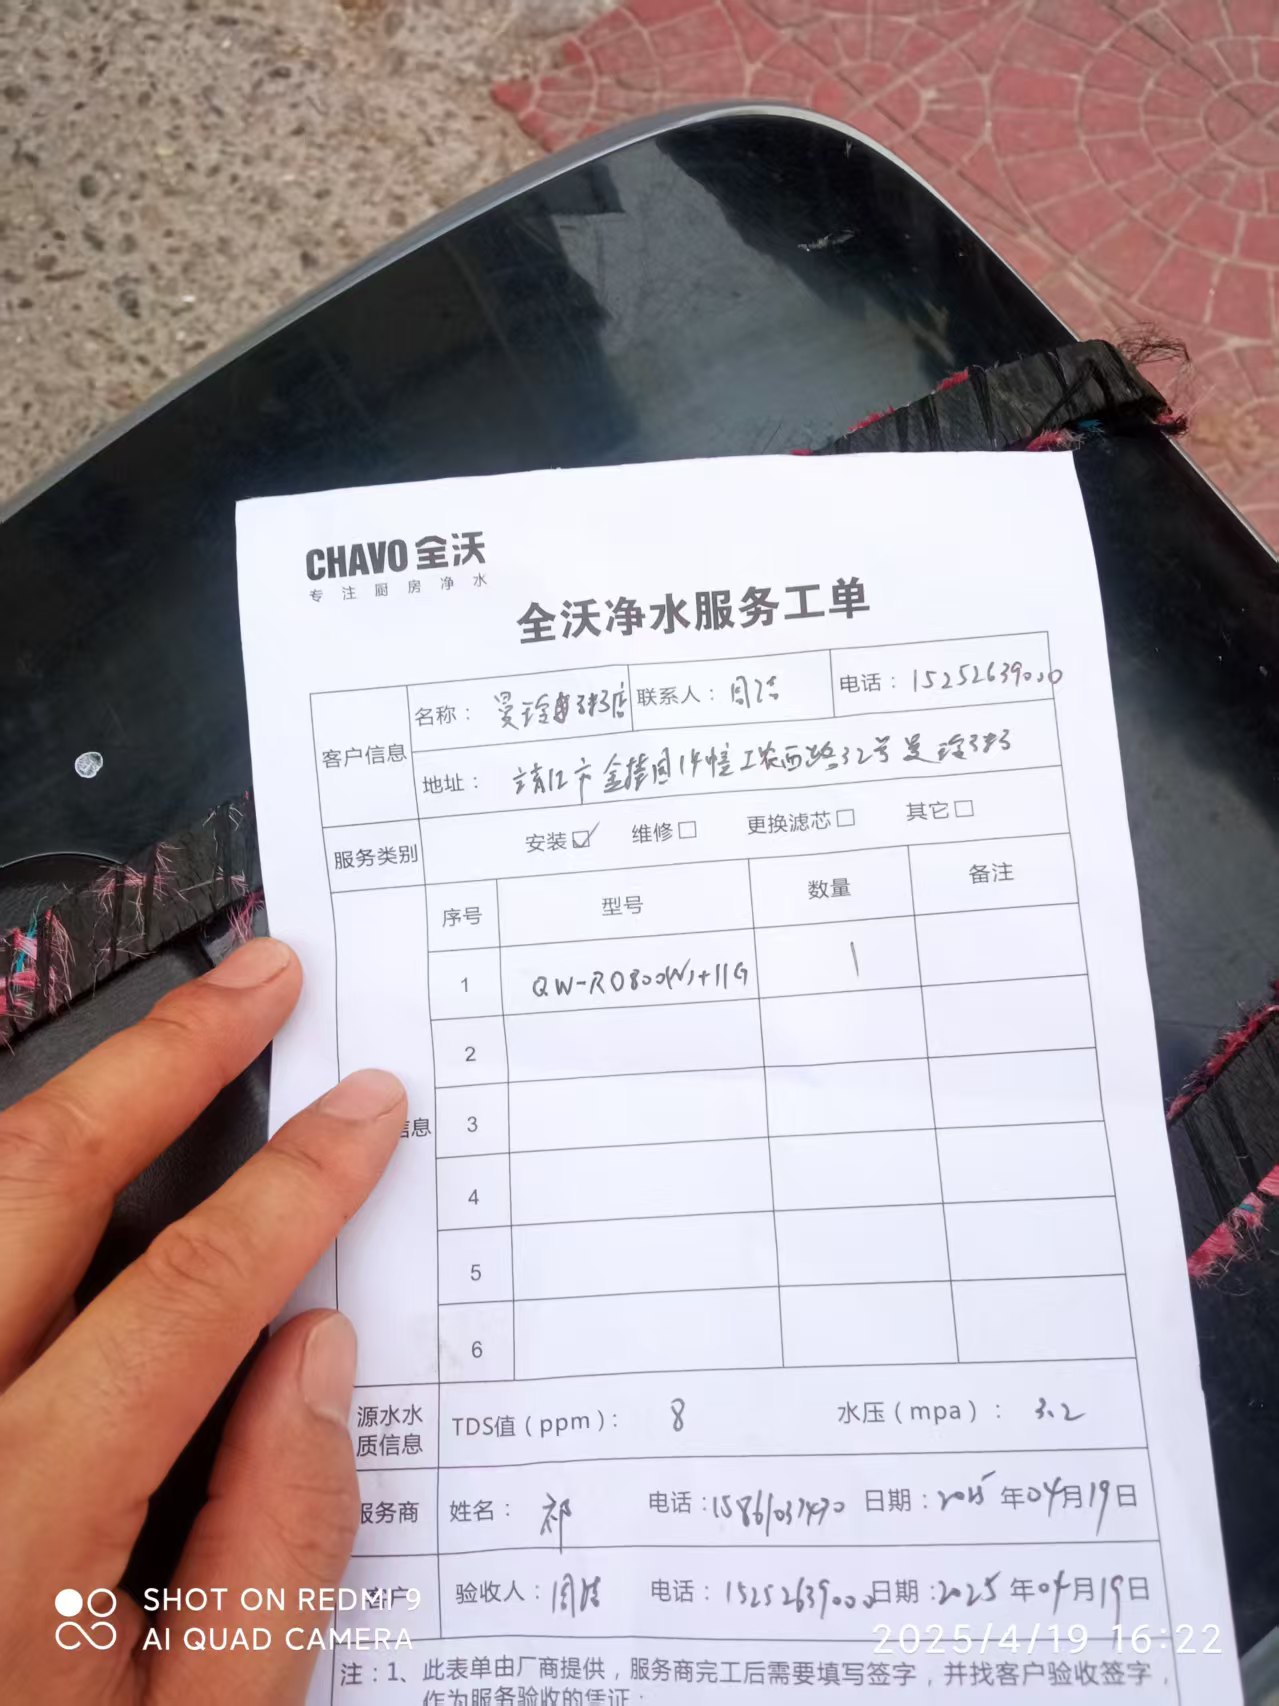 CHAVO 全沃
专注厨房净水
全沃净水服务工单
客户信息 名称： 曼玲粥店 联系人： 周洁 电话： 15252639000
地址： 靖江市 工农西路32号曼玲粥
服务类别 安装☑ 维修□ 更换滤芯□ 其它□
序号 型号 数量 备注
1 QW-RO800(N)+11G 1
2
信息 3
4
5
6
源水水质信息 TDS值（ppm）： 8 水压（mpa）： 3.2
服务商 姓名： 祁 电话：15861037470 日期：2025年04月19日
客户 验收人：周洁 电话：15252639000 日期：2025年04月19日
注：1、此表单由厂商提供，服务商完工后需要填写签字，并找客户验收签字，
作为服务验收的凭证；
SHOT ON REDMI 9
AI QUAD CAMERA
2025/4/19 16:22